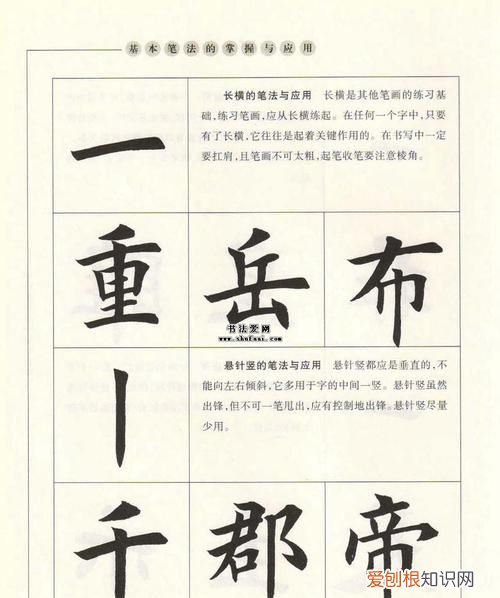 基本笔法的掌握与应用
一
长横的笔法与应用 长横是其他笔画的练习基
础,练习笔画,应从长横练起。在任何一个字中,只要
有了长横,它往往是起着关键作用的。在书写中一定
要扛肩,且笔画不可太粗,起笔收笔要注意棱角。
重 岳 布
书法爱网
www.shufaai.com
丨
悬针竖的笔法与应用 悬针竖都应是垂直的,不
能向左右倾斜,它多用于字的中间一竖。悬针竖虽然
出锋,但不可一笔甩出,应有控制地出锋。悬针竖尽量
少用。
千 郡 帝
爱刨根知识网